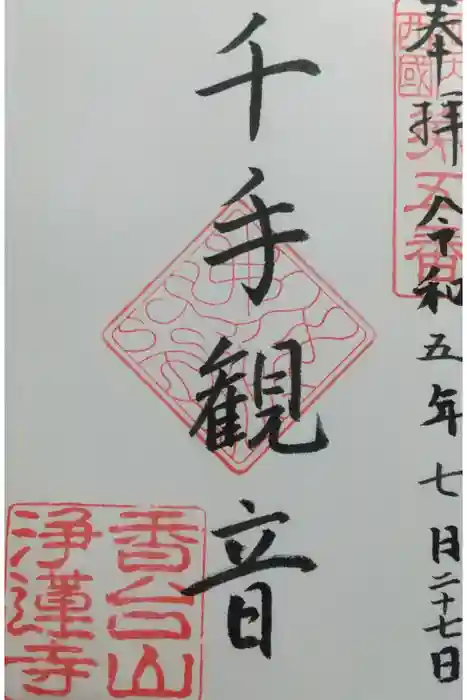 奉拝 令和五年七日二十七日
西國
第五番
千手観音
香台山
浄蓮寺